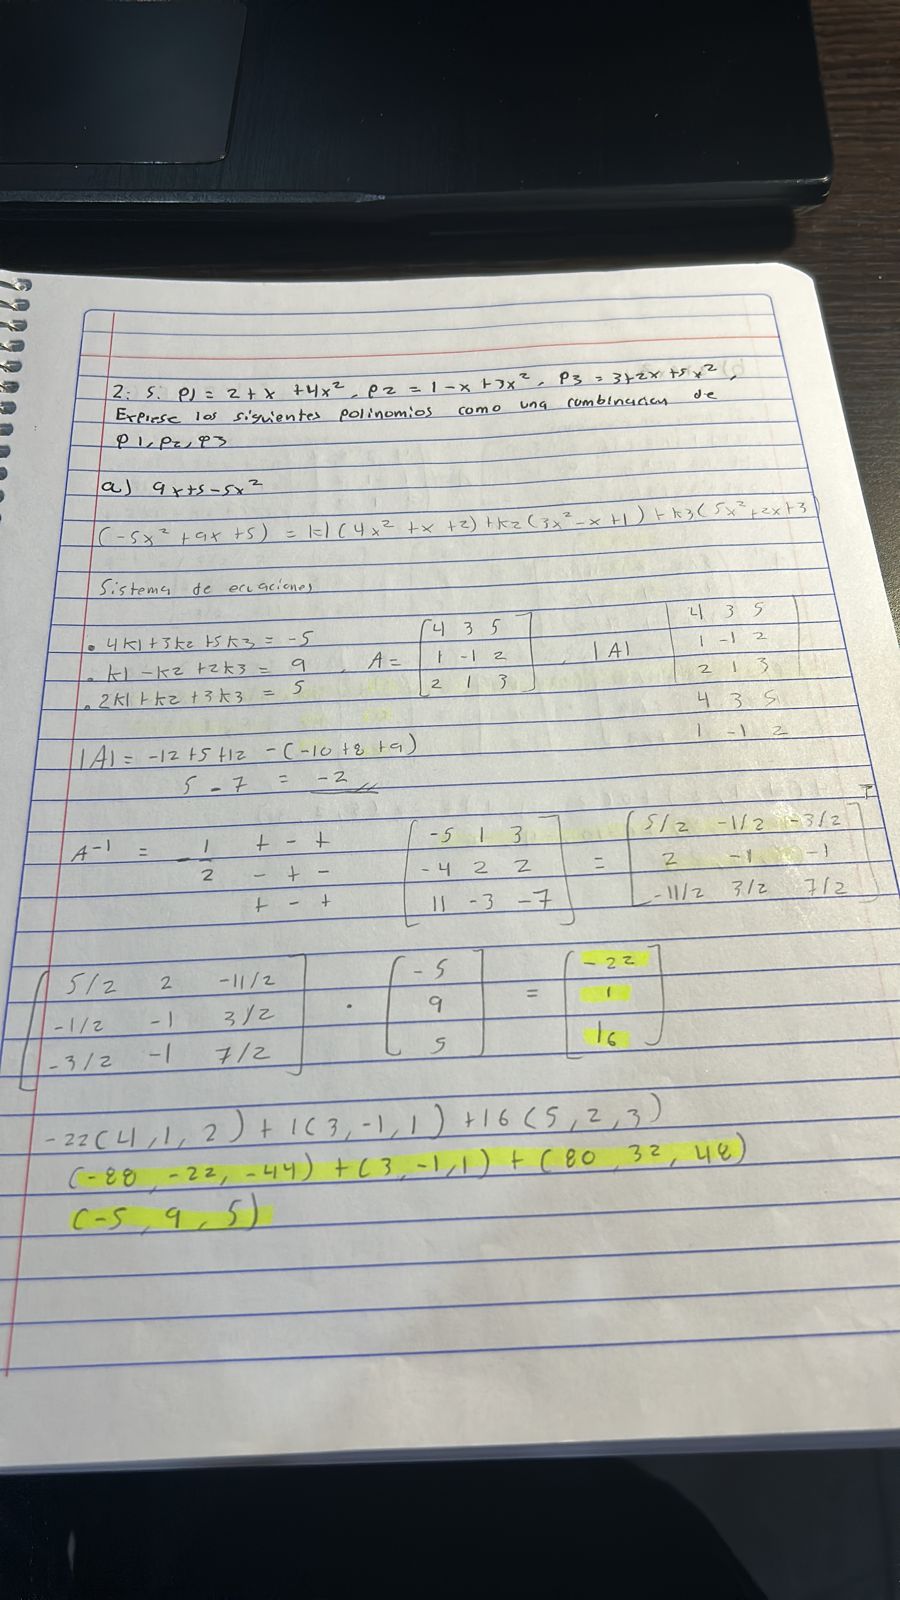 2. Si P1 = 2 + x + 4x², P2 = 1 - x + 3x², P3 = 3 + 2x + 5x²,
Exprese los siguientes polinomios como una combinacion de
P1, P2, P3
a) 9x+5-5x²
(-5x² + 9x + 5) = k1(4x² + x + 2) + k2(3x² - x + 1) + k3(5x² + 2x + 3
Sistema de ecuaciones
• 4k1 + 3k2 + 5k3 = -5
• k1 - k2 + 2k3 = 9
• 2k1 + k2 + 3k3 = 5
A =
4 3 5
1 -1 2
2 1 3
|A|
4 3 5
1 -1 2
2 1 3
4 3 5
1 -1 2
|A| = -12 + 5 + 12 - (-10 + 8 + 9)
5 - 7 = -2
A⁻¹ = -1/2
+ - +
- + -
+ - +
-5 1 3
-4 2 2
11 -3 -7
=
5/2 -1/2 -3/2
2 -1 -1
-11/2 3/2 7/2
T
5/2 2 -11/2
-1/2 -1 3/2
-3/2 -1 7/2
·
-5
9
5
=
-22
1
16
-22(4, 1, 2) + 1(3, -1, 1) + 16(5, 2, 3)
(-88, -22, -44) + (3, -1, 1) + (80, 32, 48)
(-5, 9, 5)